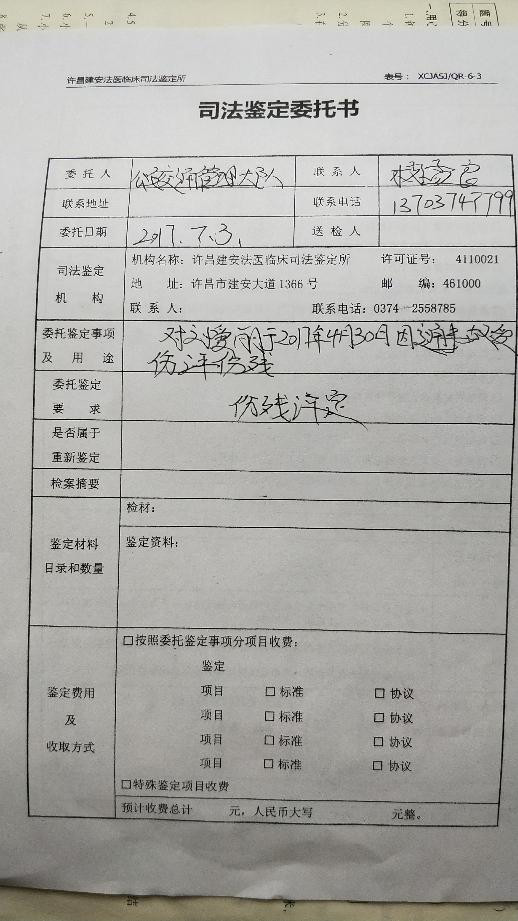 许昌建安法医临床司法鉴定所 表号： XCJASJ/QR-6-3
司法鉴定委托书
委托人 公安交通管理大队 联系人
联系地址 联系电话 13703747799
委托日期 2017.7.3. 送检人
司法鉴定机构 机构名称：许昌建安法医临床司法鉴定所 许可证号： 4110021
地 址：许昌市建安大道1366号 邮 编：461000
联系人： 联系电话：0374-2558785
委托鉴定事项及用途 对 于2017年4月30日因 受
伤 评伤残
委托鉴定要求 伤残评定
是否属于重新鉴定
检案摘要
鉴定材料目录和数量 检材：
鉴定资料：
鉴定费用及收取方式 □按照委托鉴定事项分项目收费：
鉴定
项目 □标准 □协议
项目 □标准 □协议
项目 □标准 □协议
项目 □标准 □协议
□特殊鉴定项目收费
预计收费总计 元，人民币大写 元整。